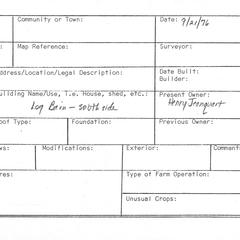 Community or Town:
Date: 9/21/76
Map Reference:
Surveyor:
ddress/Location/Legal Description:
Date Built:
Builder:
uilding Name/Use, I.e. House, shed, etc.:
Log Barn - south side
Present Owner:
Henry
oof Type:
Foundation:
Previous Owner:
ws:
Modifications:
Exterior:
Comment
res:
Type of Farm Operation:
Unusual Crops: